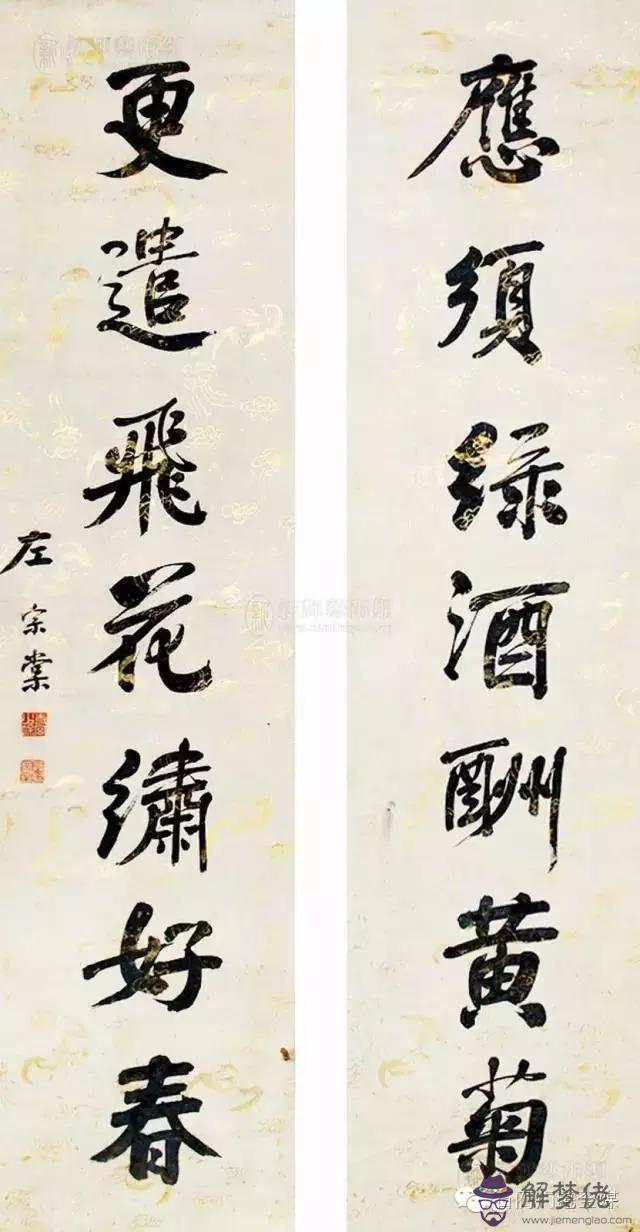 應須綠酒酬黃菊
更遣飛花繡好春
左宗棠
解梦佬
www.jiemenglao.com